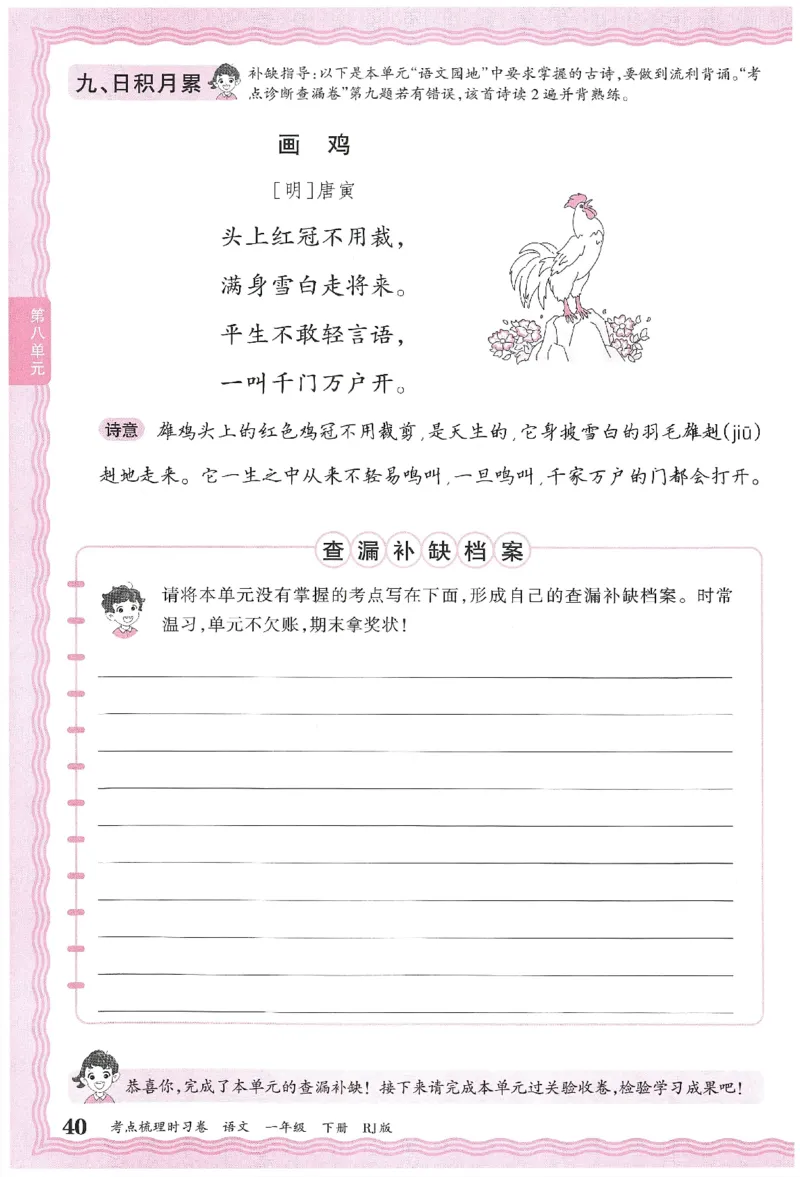 九、日积月累
补缺指导:以下是本单元“语文园地”中要求掌握的古诗,要做到流利背诵。“考
点诊断查漏卷”第九题若有错误,该首诗读2遍并背熟练。
画 鸡
[明]唐寅
头上红冠不用裁,
满身雪白走将来。
平生不敢轻言语,
一叫千门万户开。
诗意 雄鸡头上的红色鸡冠不用裁剪,是天生的,它身披雪白的羽毛雄赳(jiū)
赳地走来。它一生之中从来不轻易鸣叫,一旦鸣叫,千家万户的门都会打开。
第八单元
查漏补缺档案
请将本单元没有掌握的考点写在下面,形成自己的查漏补缺档案。时常
温习,单元不欠账,期末拿奖状!
恭喜你,完成了本单元的查漏补缺!接下来请完成本单元过关验收卷,检验学习成果吧!
40 考点梳理时习卷 语文 一年级 下册 RJ版